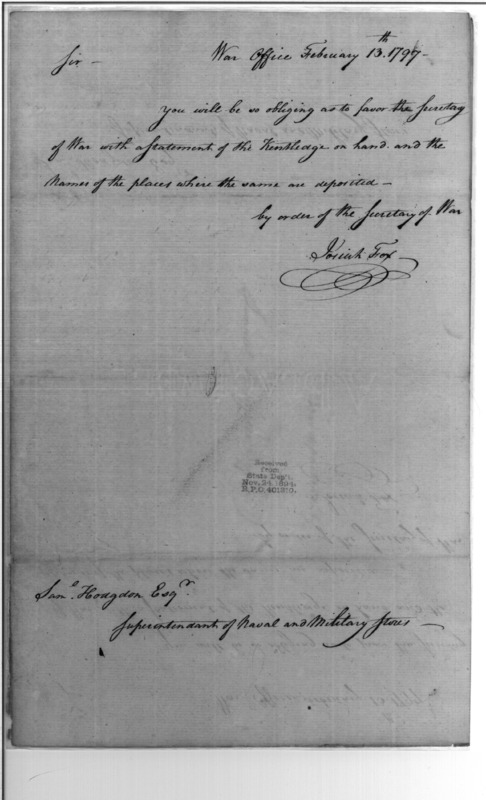 War Office February 13.th 1797-
Sir -
You will be so obliging as to favor the Secretary
of War with a Statement of the Kentledge on hand. and the
Names of the places where the same are deposited -
by order of the Secretary of War
Josiah Fox
Received
from
State Dep't.
Nov. 24, 1894.
R.P.O. 401310.
Sam.l Hodgdon Esq.r
Superintendant of Naval and Military Stores -